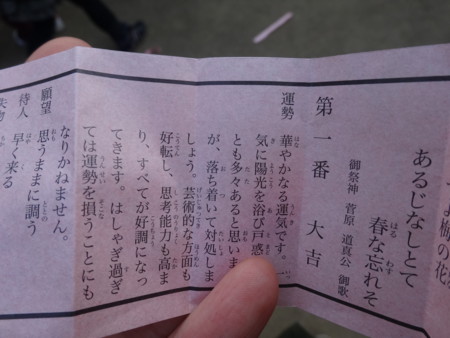 よ梅の花
あるじなしとて
春な忘れそ
御祭神 菅原 道真公 御歌
第一番 大吉
運勢 華やかなる運気です。
気に陽光を浴び戸惑
とも多々あると思いま
が、落ち着いて対処しま
しょう。芸術的な方面も
好転し、思考能力も高ま
り、すべてが好調になっ
てきます。はしゃぎ過ぎ
ては運勢を損うことにも
なりかねません。
願望 思うままに調う
待人 早く来る